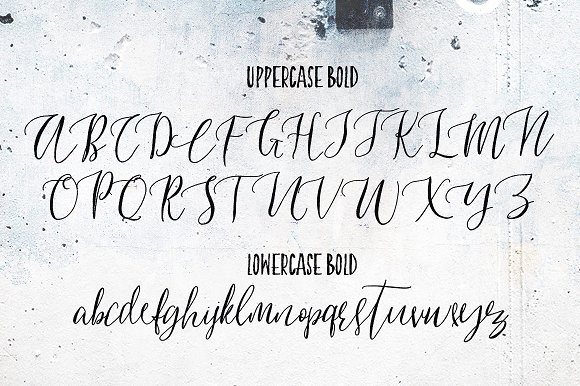 UPPERCASE BOLD
ABCDEFGHIJKLMN
OPQRSTUVWXYZ
LOWERCASE BOLD
abcdefghijklmnopqrstuvwxyz